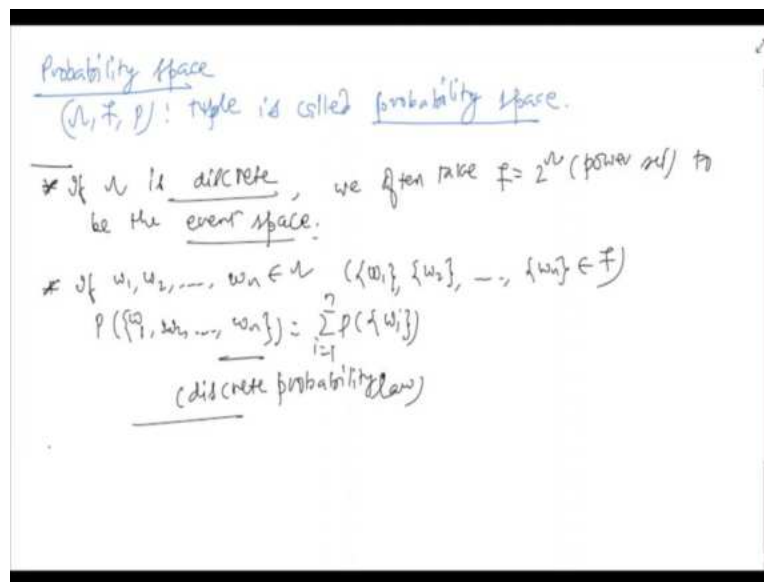 Probability space
(Ω, F, P): tuple is called probability space.
* If Ω is discrete, we often take F = 2^Ω (power set) to
be the event space.
* If ω1, ω2, ..., ωn ∈ Ω ({ω1}, {ω2}, ..., {ωn} ∈ F)
P({ω1, ω2, ..., ωn}) = ∑_{i=1}^{n} P({ωi})
(discrete probability law)